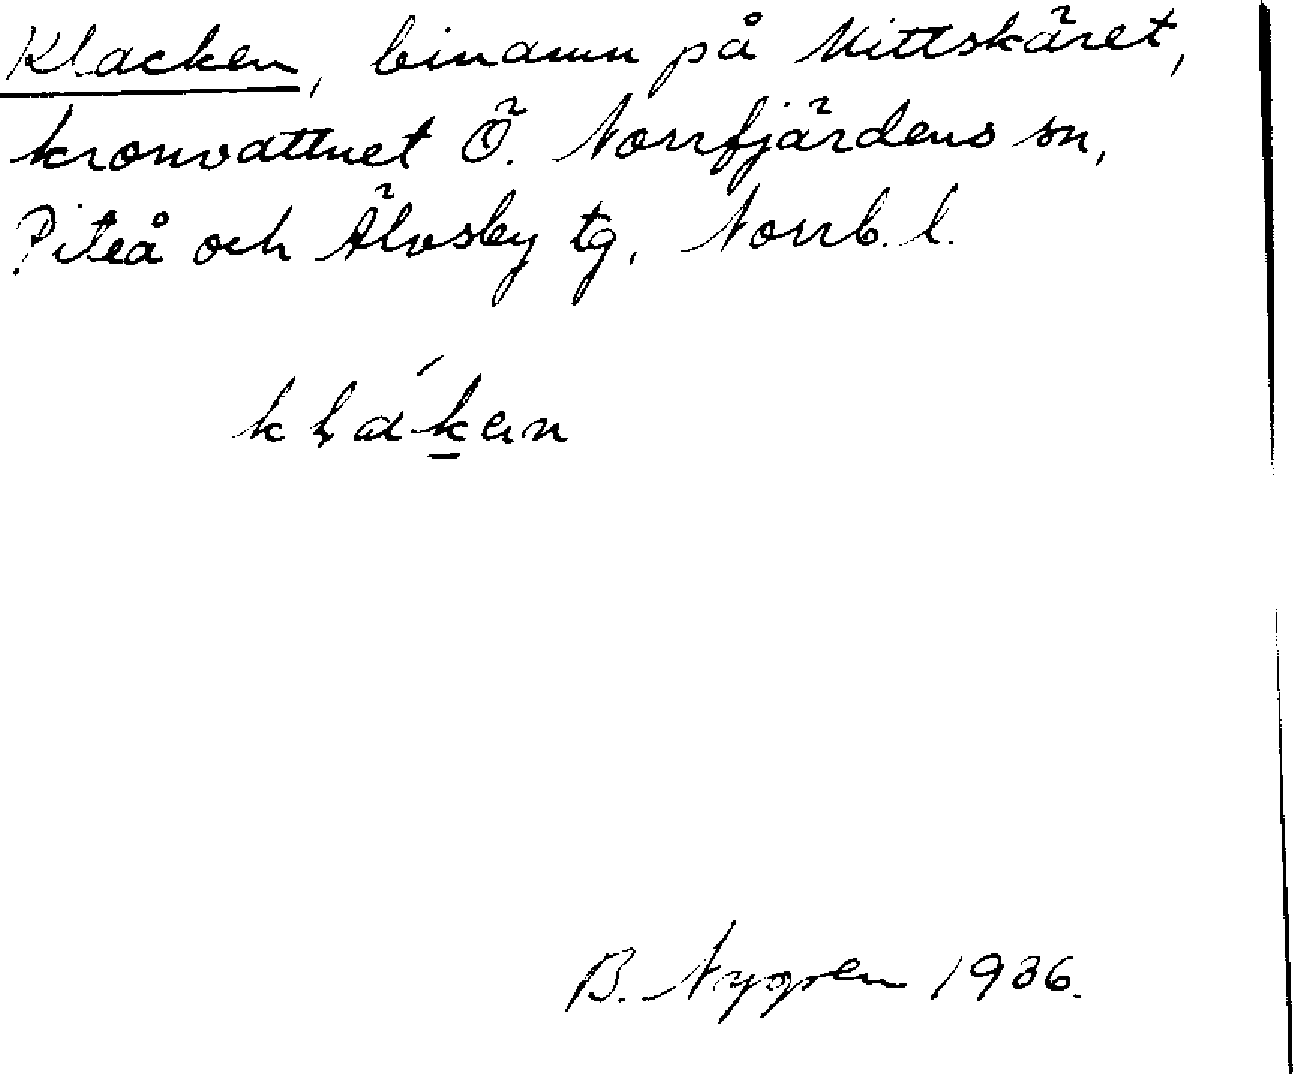 Klacken, binamn på Mittskäret,
kronvattnet Ö. Norrfjärdens sn,
Piteå och Älvsby tg, Norrb. l.
B. Nygren 1936.